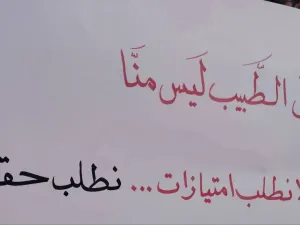 الطَّبيب لَيس منَّا
لا نطلب امتيازات ... نطلب